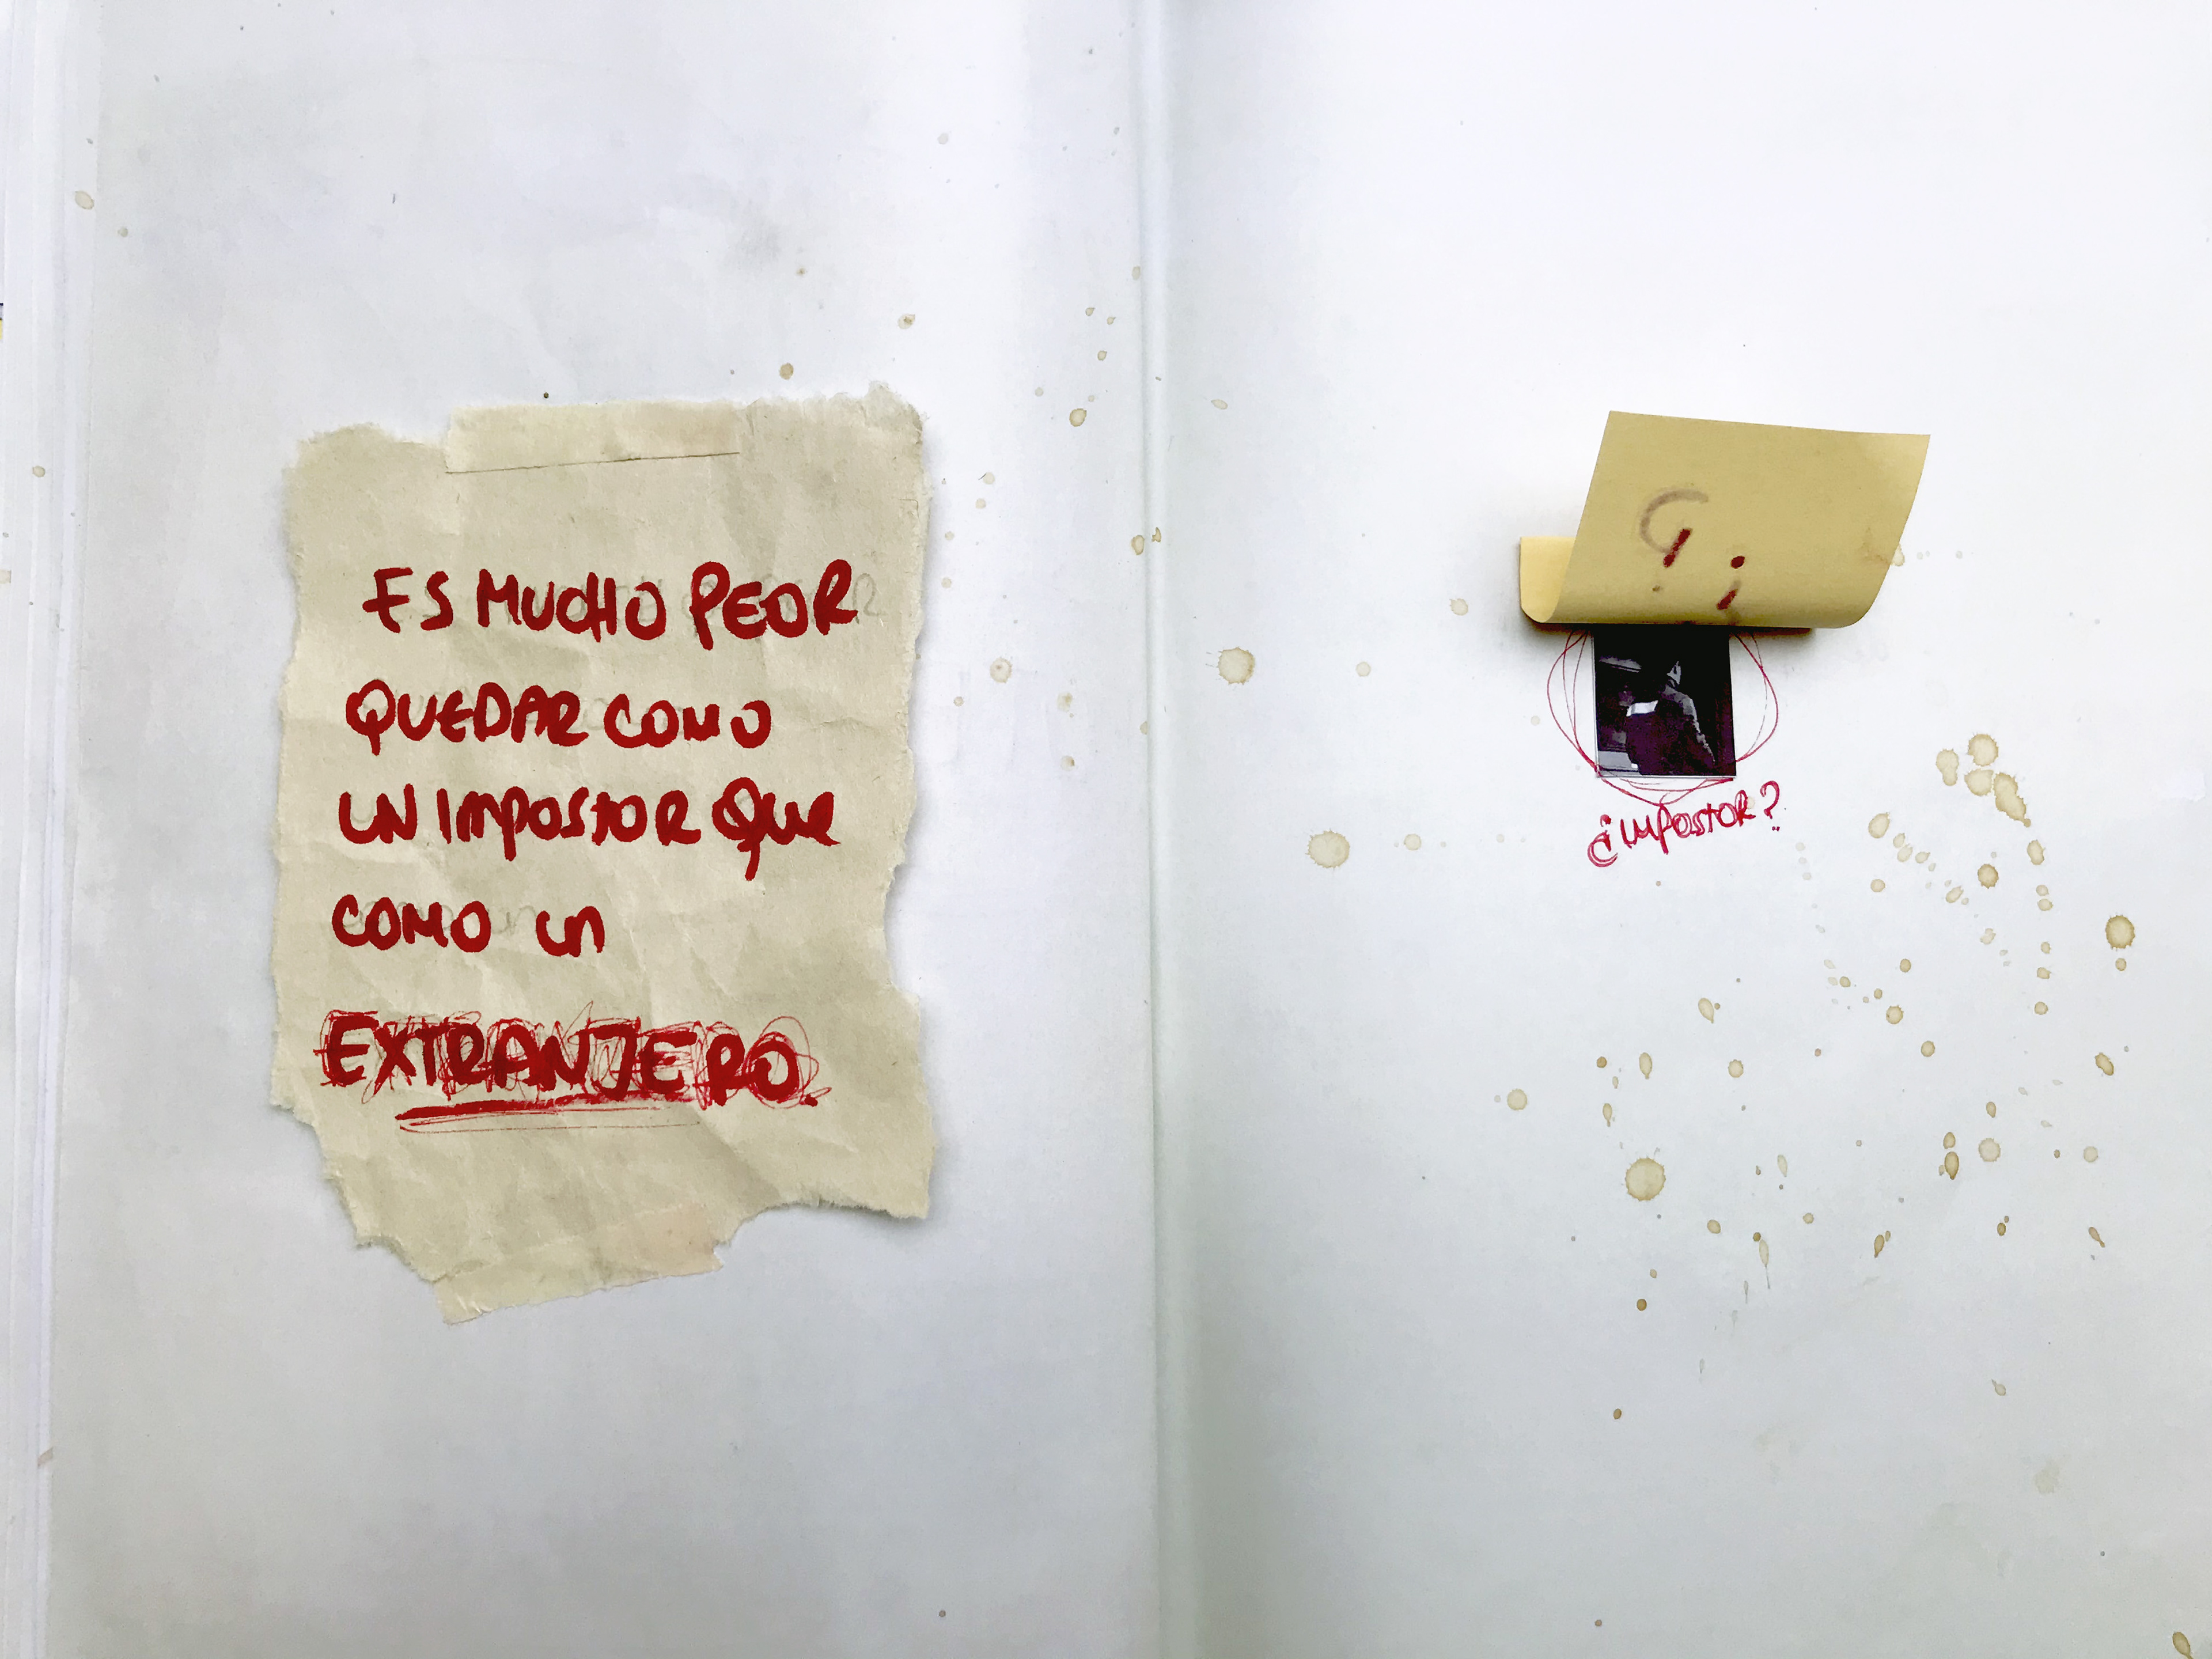 ES MUCHO PEOR
QUEDAR COMO
UN IMPOSTOR QUE
COMO UN
EXTRANJERO.
¿IMPOSTOR?